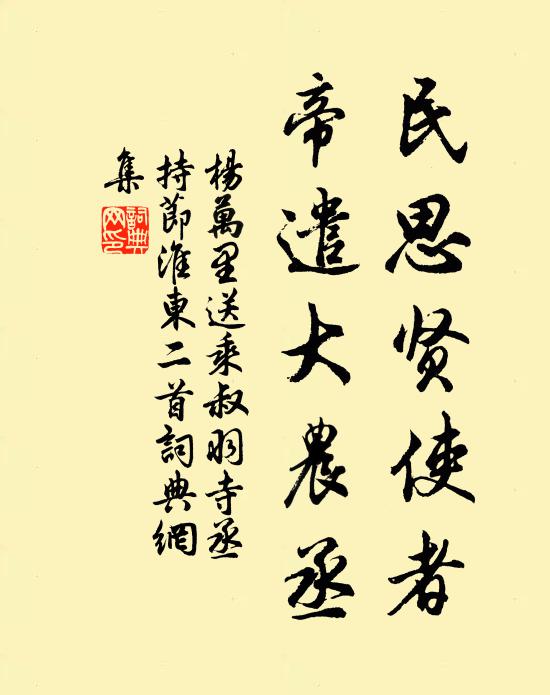 民思贤使者
帝遣大農丞
楊萬里送乘叔羽寺丞
持節淮東二首詞典網
集
詞典
网印